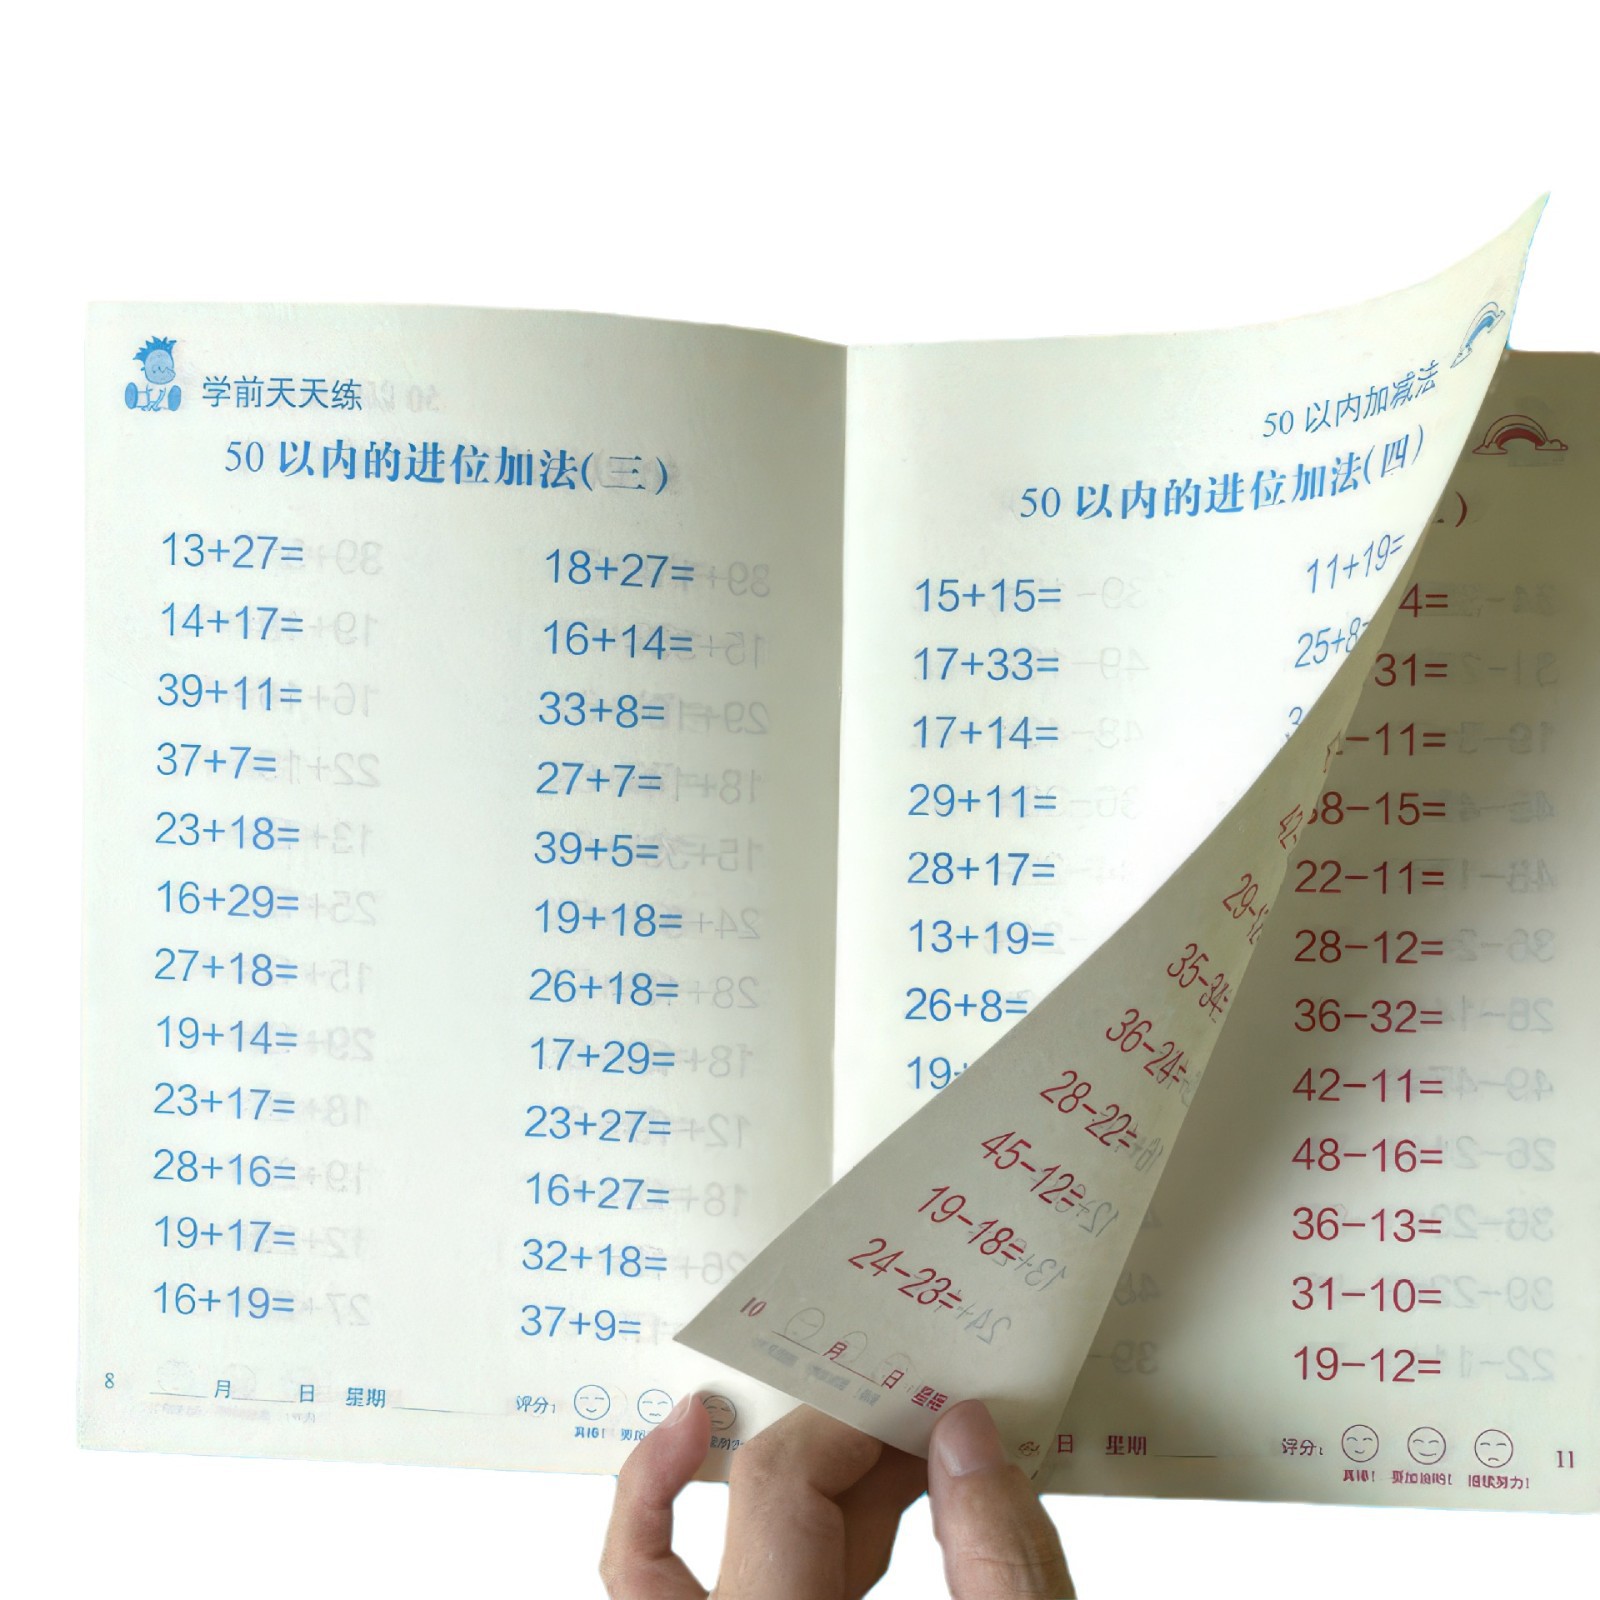 学前天天练
50 以内的进位加法(三)
13+27=
18+27=
14+17=
16+14=
39+11=
33+8=
37+7=
27+7=
23+18=
39+5=
16+29=
19+18=
27+18=
26+18=
19+14=
17+29=
23+17=
23+27=
28+16=
16+27=
19+17=
32+18=
16+19=
37+9=
8 月 日 星期 评分:
50 以内加减法
50 以内的进位加法(四)
15+15=
11+19=
17+33=
25+8=
17+14=
29+11=
28+17=
13+19=
26+8=
19+
35-34=
36-24=
28-22=
45-12=
19-18=
24-23=
10 月 日 星期
)
4=
31=
-11=
8-15=
22-11=
28-12=
36-32=
42-11=
48-16=
36-13=
31-10=
19-12=
日 星期 评分: 11
真棒! 要加油哟! 继续努力!